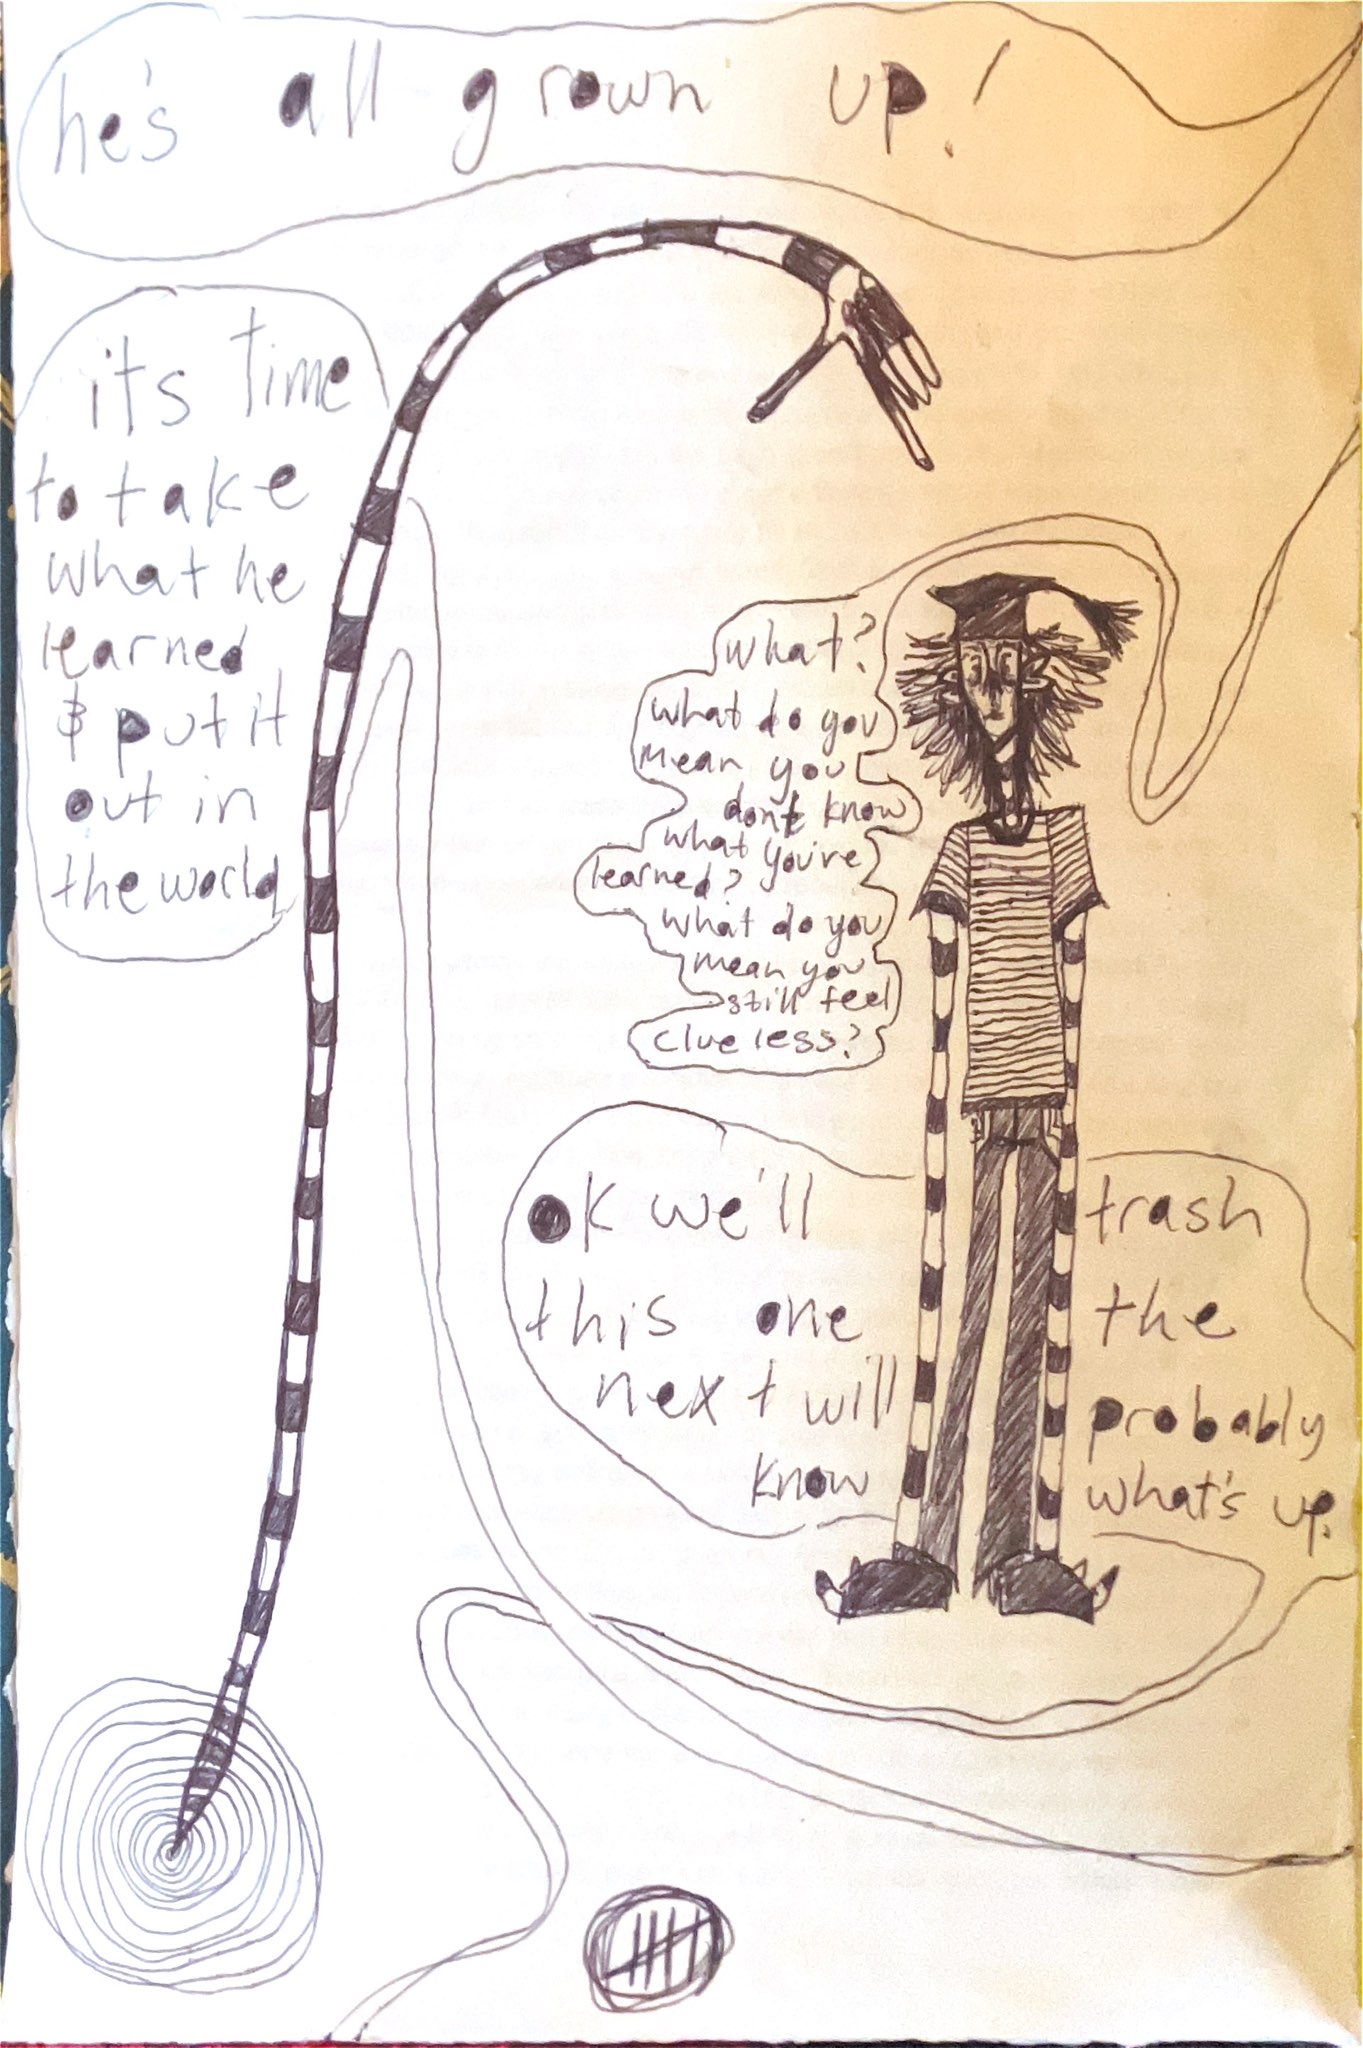 he's all grown up!
its time
to take
what he
learned
& put it
out in
the world
what?
what do you
mean you
don't know
what you're
learned?
what do you
mean you
still feel
clueless?
ok we'll trash
this one the
next will probably
know what's up.